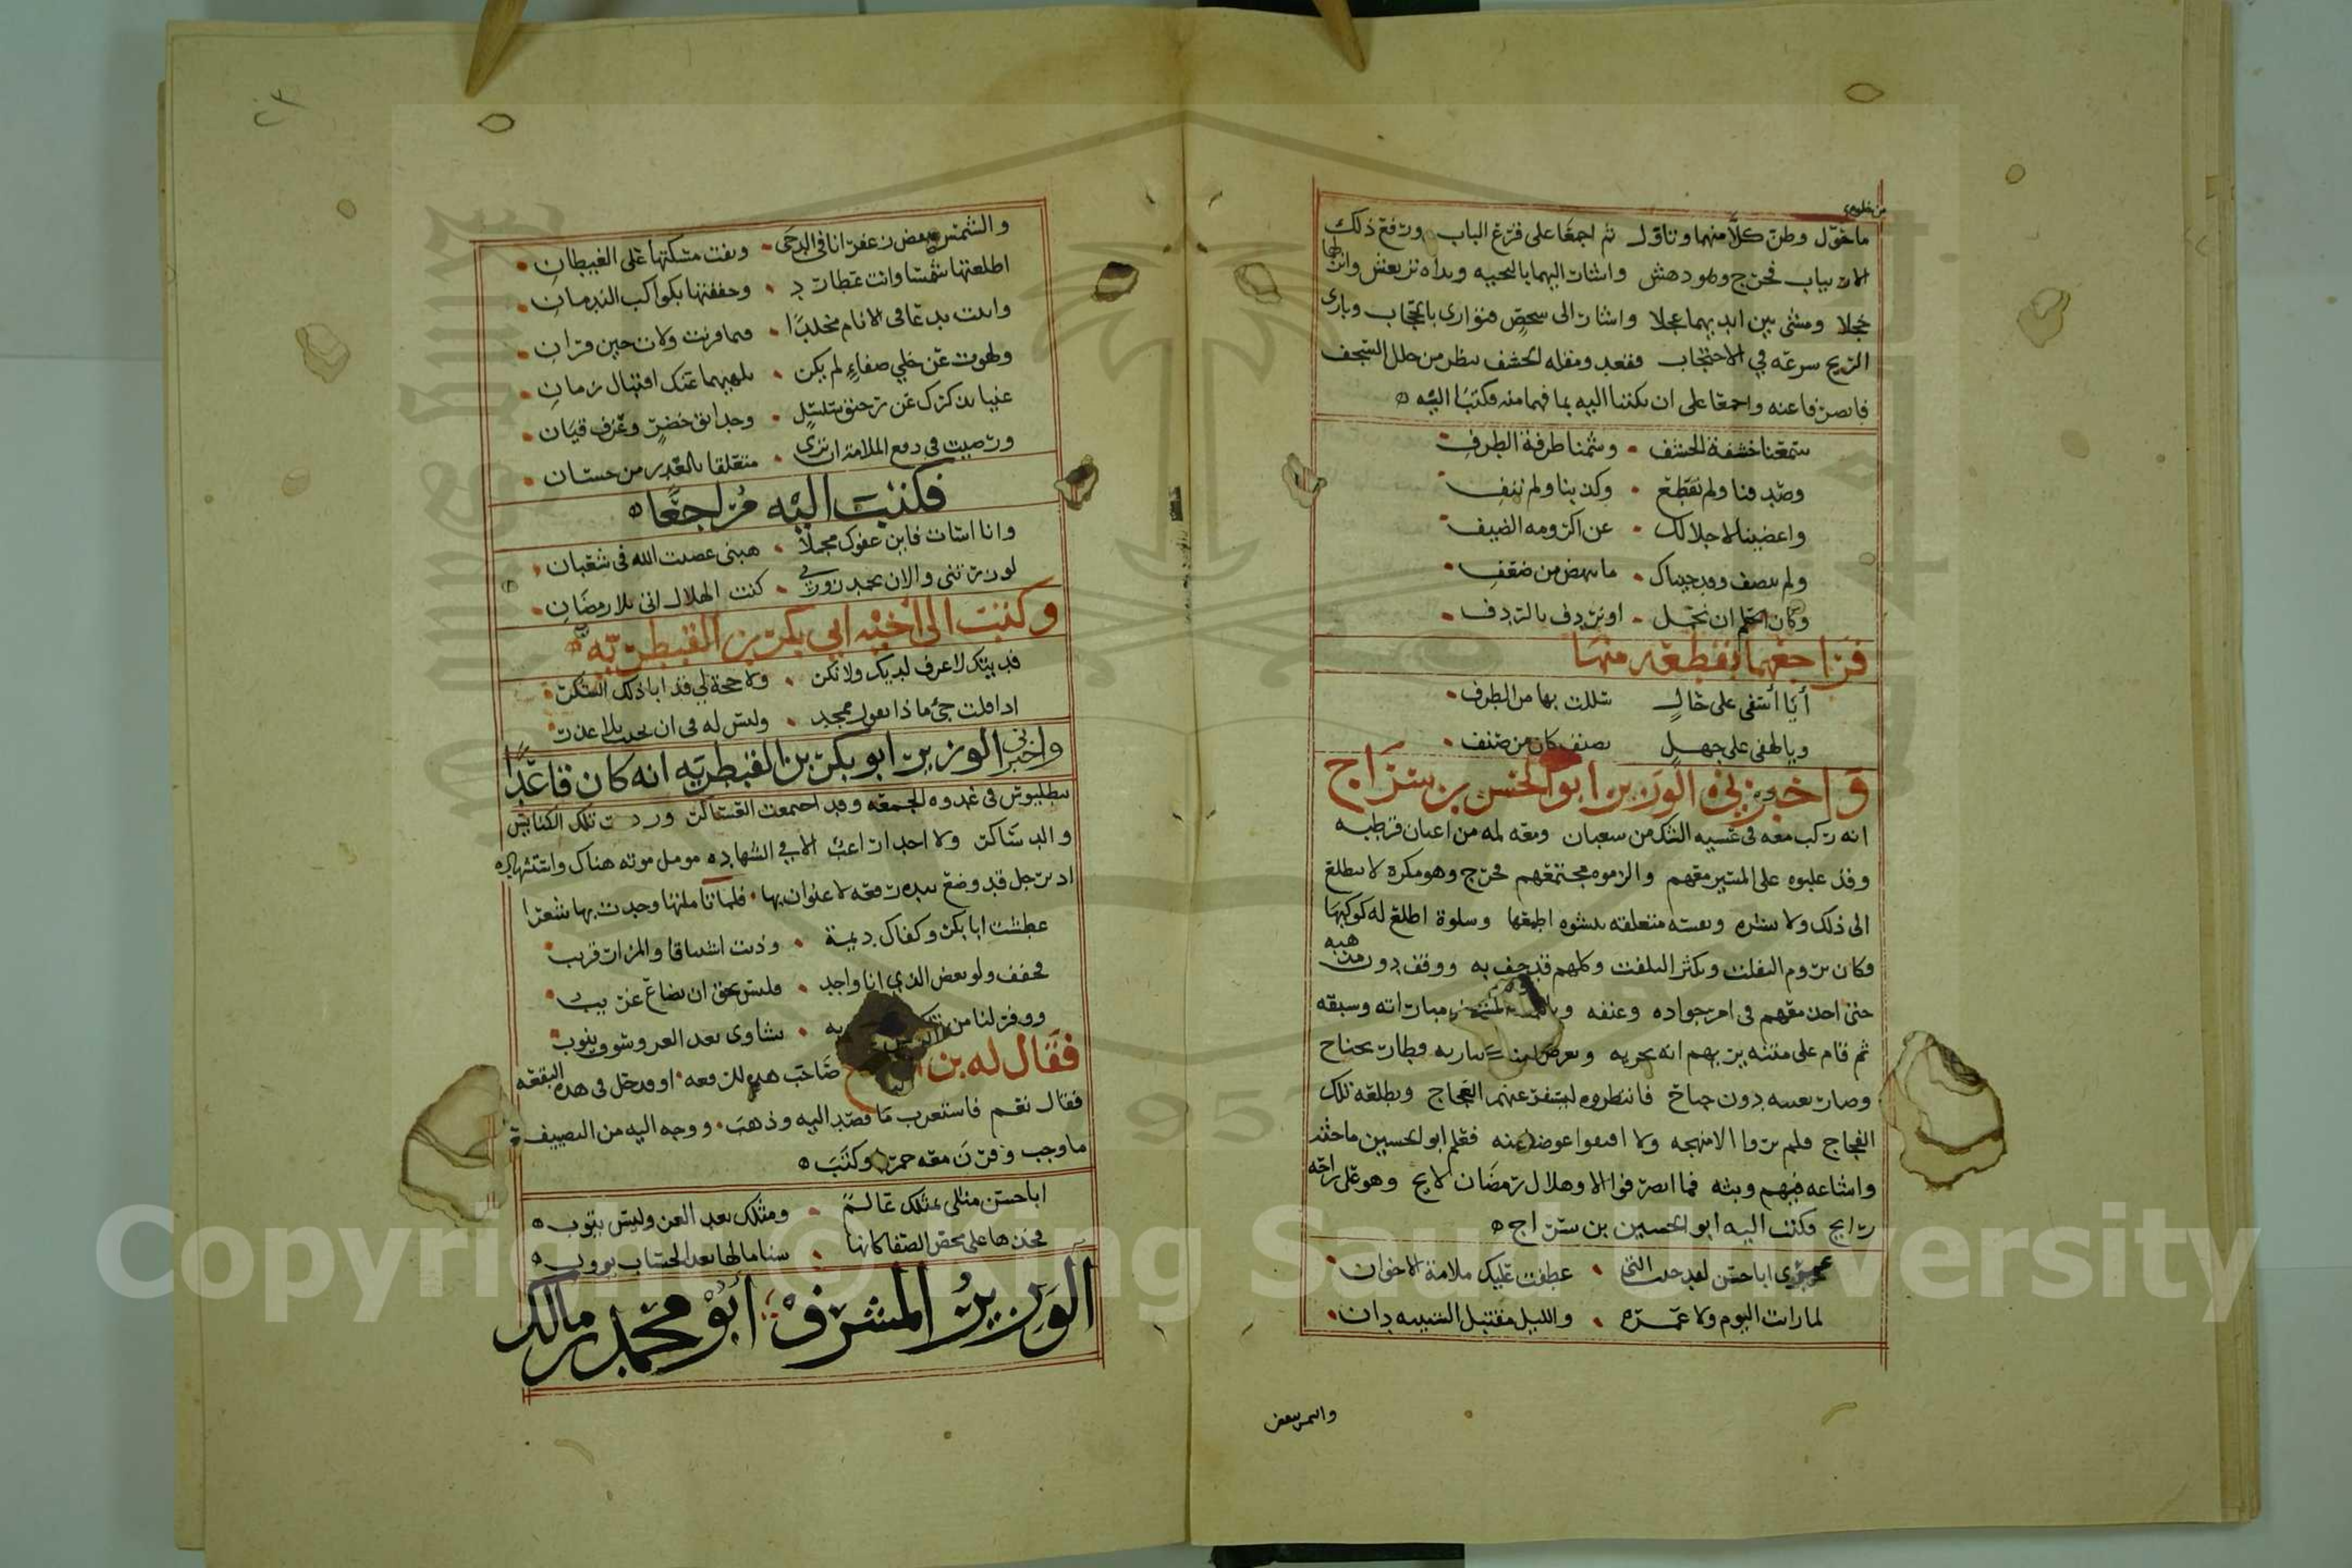 ما خول وظن كلا منهما وتاول ثم اجمعا على قرع الباب ورفع ذلك
الارتياب فخرج وهو دهش واشار اليهما بالتحيه ويداه ترتعش وانزلهما
خجلا ومشى بين ايديهما عجلا واشار الى شخص فتوارى بالحجاب وبارى
الريح سرعة في الاحتجاب فقعد ومقله الخشف تنظر من خلل السجف
فانصرفا عنه واجمعا على ان يكتبا اليه بما فهما منه فكتبا اليه
سمعنا خشفة الخشف وشمنا طرفة الطرف
وصدقنا ولم نقطع وكذبنا ولم ننف
واغضينا لاجلالك عن اكرومه الضيف
ولم تنصف وقد جيناك ما ننهض من ضعف
وكان الحكم ان تحمل او تردف بالردف
فراجعهما بقطعه منها
أيا أسفى على حال سللت بها من الطرف
ويا لهفى على جهل بضيف كان من صنف
واخبرني الوزير ابو الحسن بن سراج
انه ركب معه في عشيه الشك من شعبان ومعه لمه من اعيان قرطبه
وقد غلبوه على المسير معهم والزموه مجتمعهم فخرج وهو مكره لا يتطلع
الى ذلك ولا يشره ونفسه متعلقه بنشوه اطبقها وسلوة اطلع له كوكبها
فكان يروم التفلت ويكثر التلفت وكلهم قد حف به ووقف دون مذهبه
حتى اخذ معهم في امر جواده وعتقه مباراته وسبقه
ثم قام على متنه يريهم انه يجريه وطار بجناح
وصار بعينه دون جماح فانتظروه ليسفر عنهم العجاج ويطلعه تلك
الفجاج فلم يروا الا منهجه ولا الفوا عوضا عنه فعلم ابو الحسين ماخذه
واشاعه فيهم وبثه فما انصرفوا الا وهلال رمضان لايح وهو على راحه
رايح فكتب اليه ابو الحسين بن سراج
عمرى ابا حسن لقد جئت التى عطفت عليك ملامة الاخوان
لما رات اليوم ولا عمره والليل مقتبل الشبيبه دان
والشمس تنفض
والشمس تنفض زعفرانا في الدجى ونفت مسكتها على الغيطان
اطلعتها شمسا وانت عطارد وحففتها بكواكب الندمان
واتيت بدعا في الانام مخلدا فيما قرنت ولات حين قران
ولهوت عن خلي صفاء لم يكن يلهيهما عنك اقتبال زمان
غنيا بذكرك عن رحيق سلسل وحدائق خضر وعزف قيان
ورضيت في دفع الملامة ان ترى متعلقا بالعذر من حسان
فكتبت اليه مراجعا
وانا اسات فاين عفوك مجملا هبني عصيت الله في شعبان
لو زرتني والان تحمد زورتي كنت الهلال اتى بلا رمضان
وكتبت الى اخيه ابي بكر بن القبطريه
قد بيتك لا عرف لديك ولا نكر ولا حجة لي قد ابا ذلك السكر
اذا قلت جئ ماذا يقول ممجد وليس له في ان يجئ بلا عذر
واخبرني الوزير ابو بكر بن القبطريه انه كان قاعدا
ببطليوس في غدوه الجمعه وقد اجتمعت العساكر وردت تلك الكتايب
والدساكر ولا احد الا في الشهاده مومل موته هناك واستشهاده
اذ برجل قد وضع بيده رقعه لا عنوان بها فلما تاملتها وجدت بها شعرا
عطشت ابا بكر وكفاك ديمة وذبت اشتياقا والمزار قريب
فخفف ولو بعض الذي انا واجد فليس بحق ان يضاع غريب
ووفر لنا من تلك تشاوى بعد العر وينوب
فقال له بن صاحب هذه الرقعه او قد حل في هذه البقعه
فقال نعم فاستغرب ما قصد اليه وذهب ووجه اليه من التضييف
ما وجب وقرن معه خمرا وكتب
ابا حسن مثلي بمثلك عالم ومثلك بعد الغزو ليس يتوب
فخذها على محض الصفا كانها سنا مالها بعد الحساب يووب
الوزير المشرف ابو محمد بن مالك
Copyright © King Saud University